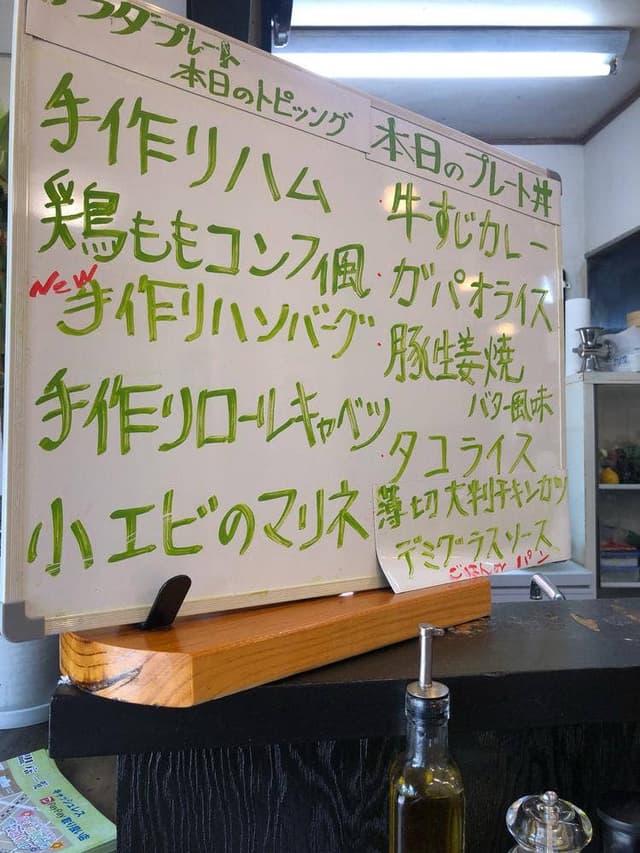 サラダプレート
本日のトピッング
手作りハム
鶏ももコンフィ風
New
手作りハンバーグ
手作りロールキャベツ
小エビのマリネ
本日のプレート丼
・牛すじカレー
・ガパオライス
・豚生姜焼
バター風味
・タコライス
薄切大判チキンカツ
デミグラスソース
ごはんor パン
キャッシュレス